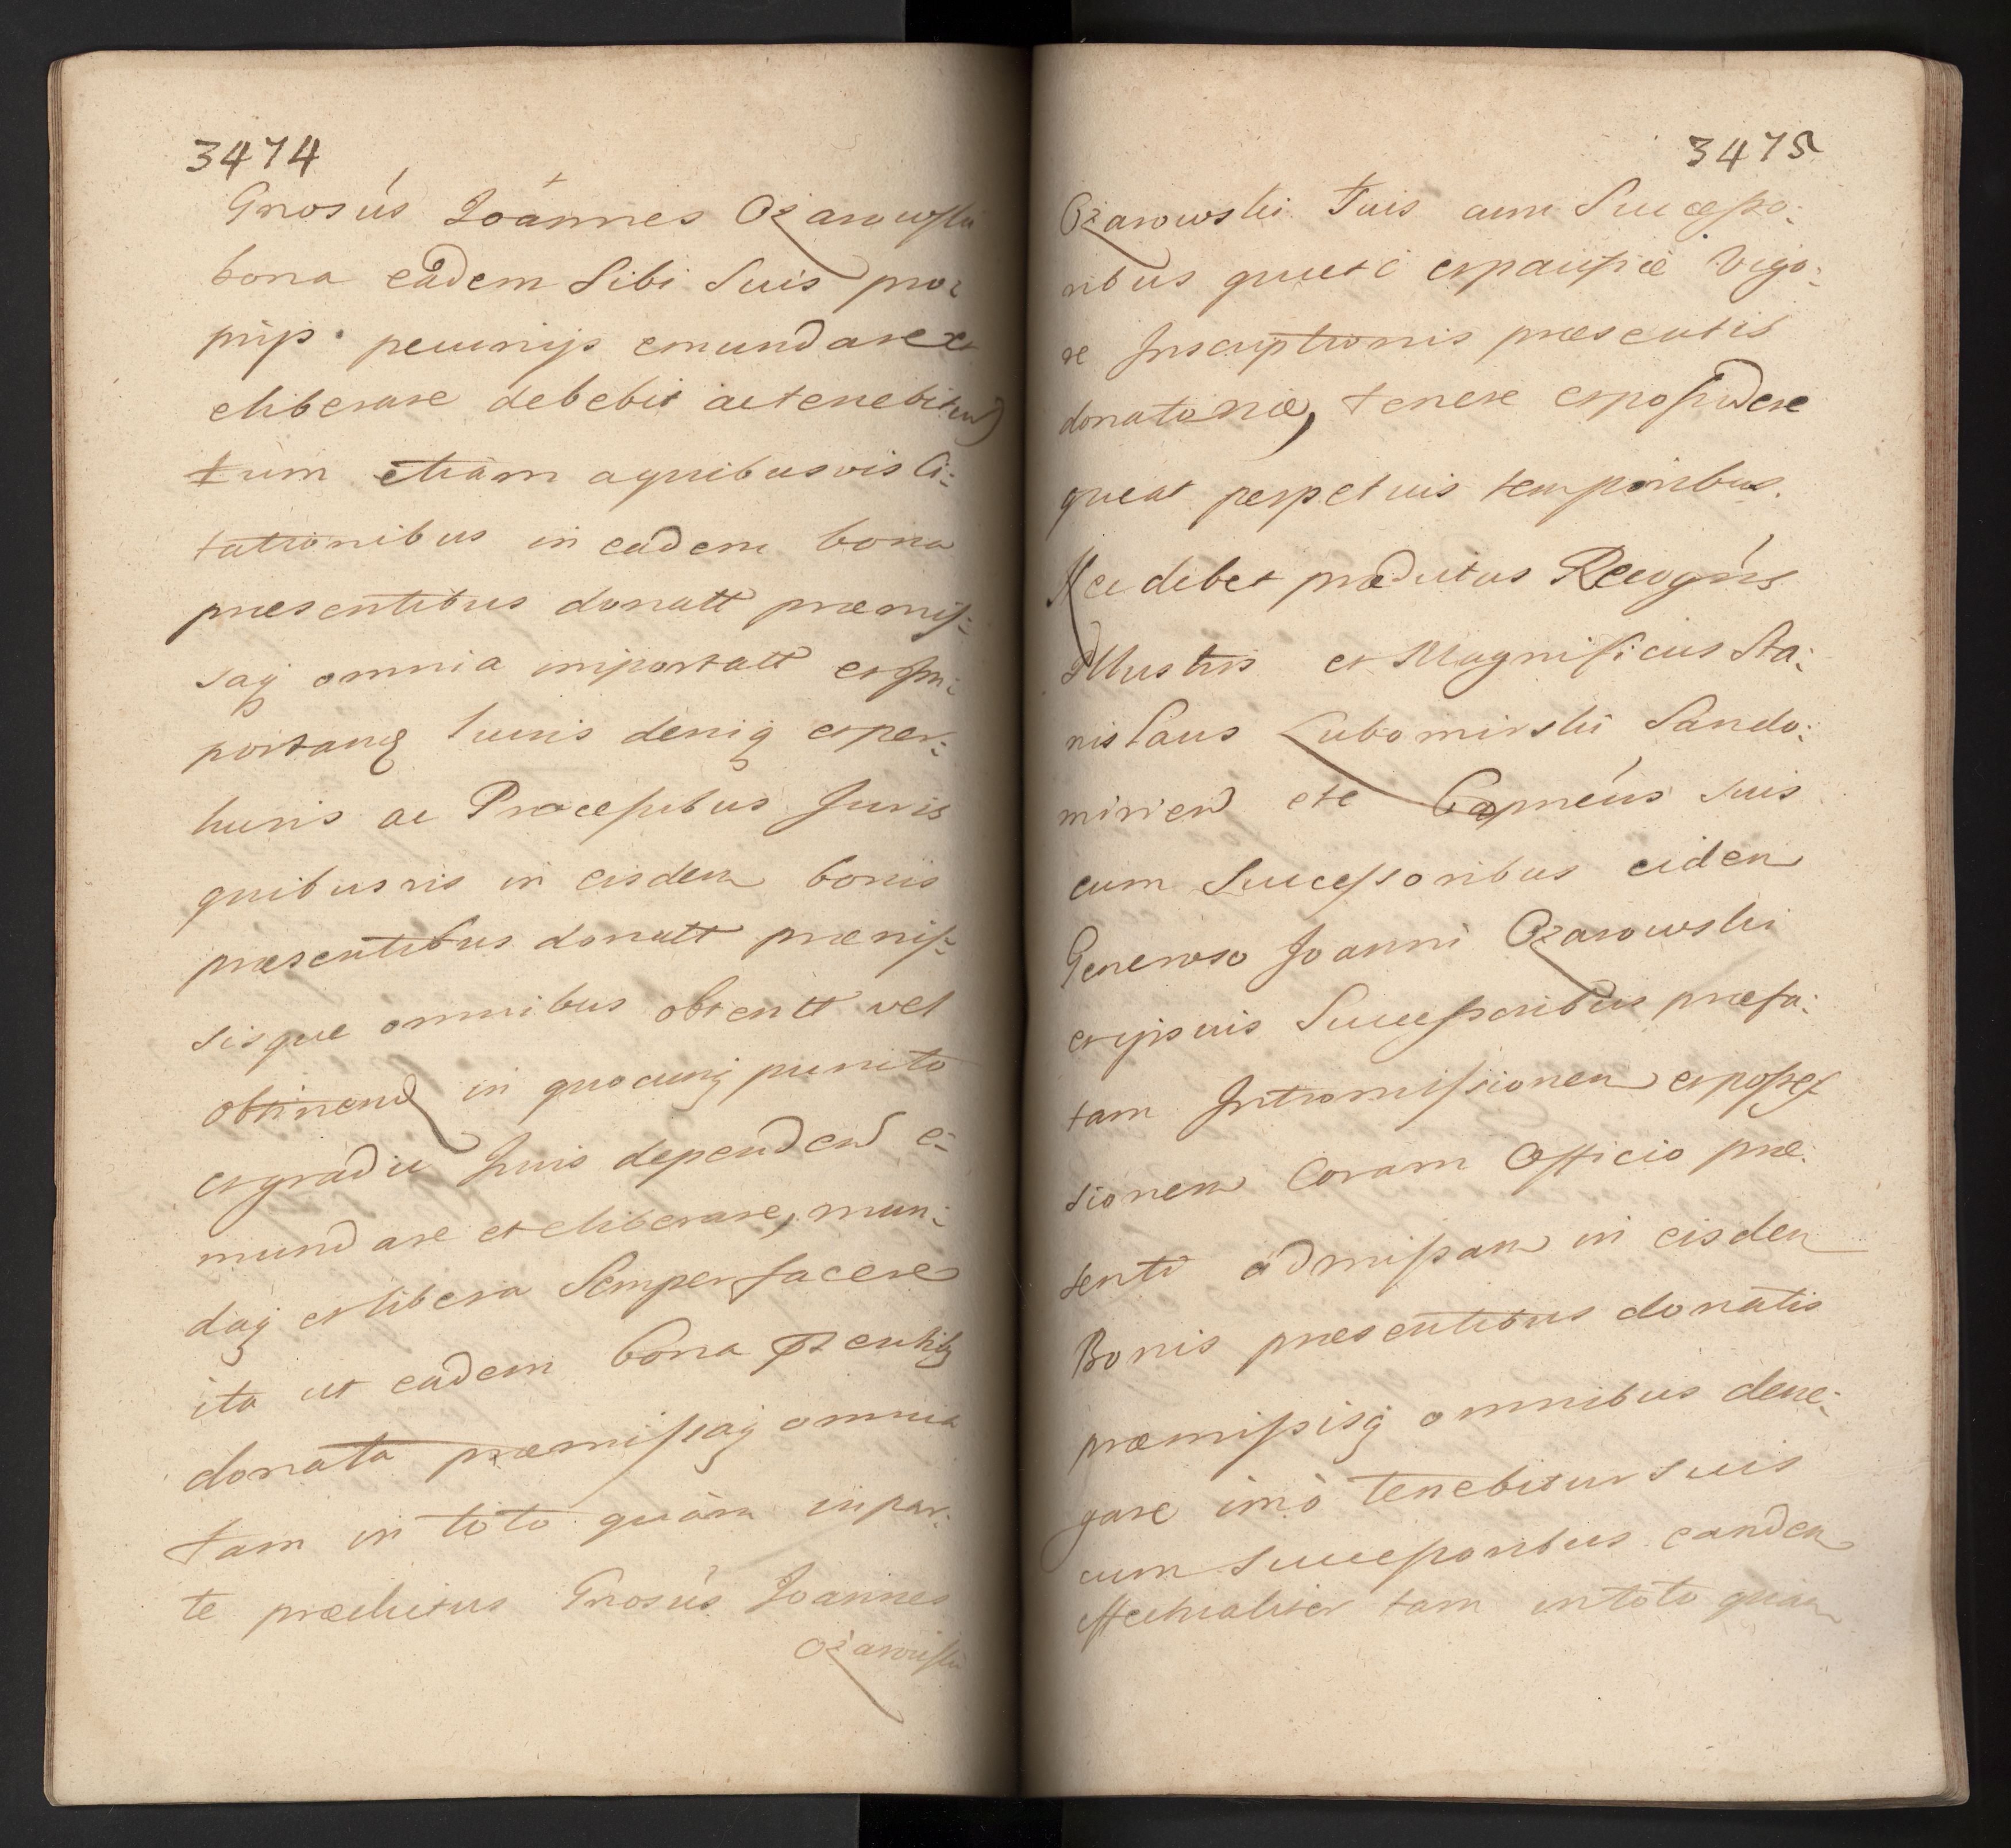 3474
Gnosús Joánnes Ożarowski
bona eadem Sibi Suis pro:
prijs pecunijs emundare et
eliberare debebit ac tenebitur
tum etiam a quibusvis Ci:
tationibus in eadem bona
praesentibus donatt praemis:
saq omnia importatt et Im:
portanđ lucris deniq et per:
lucris ac Processibus Juris
quibusvis in eisdem bonis
praesentibus donatt praemis:
sisque omnibus obtentt vel
obtinend in quocunq puncto
et gradu Juris dependen e:
mundare et eliberare, mun:
daq et libera Semper facere
ita ut eadem bona pztentibq
donata praemissaq omnia
tam in toto quàm in par:
te praelictus Gnosús Joannes
Ożarowski
3475
Ożarowski Suis cum Successo:
ribus quieté et pacificè vigo:
re Inscriptionis praesentis
donatoriae, tenere et possidere
queat perpetuis temporibus.
Nec debet praedictus Recogńs
Illustris et Magnificus Sta:
nislaus Lubomirski Sando:
mirien etc Capnéús suis
cum Successoribus eidem
Generoso Joanni Ożarowski
et ipsius Successoribus praefa:
tam Intromissionem et posses
sionem Coram Officio prae:
senti admissam in eisdem
Bonis praesentibus donatis
praemissisq omnibus dene:
gare imò tenebitur suis
cum Successoribus eandem
effectualiter tam in toto quàm